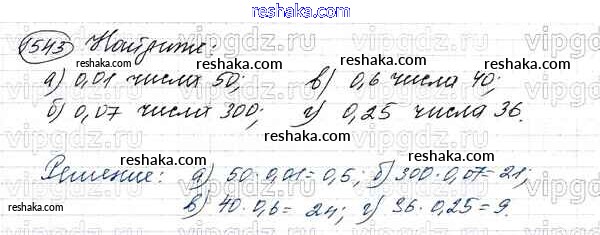 reshaka.com
1543 Найдите:
vipgdz.ru
а) 0,01 числа 50; в) 0,6 числа 40;
б) 0,07 числа 300; г) 0,25 числа 36.
reshaka.com
Решение: а) 50·0,01=0,5; б) 300·0,07=21;
в) 40·0,6= 24; г) 36·0,25=9.
reshaka.com